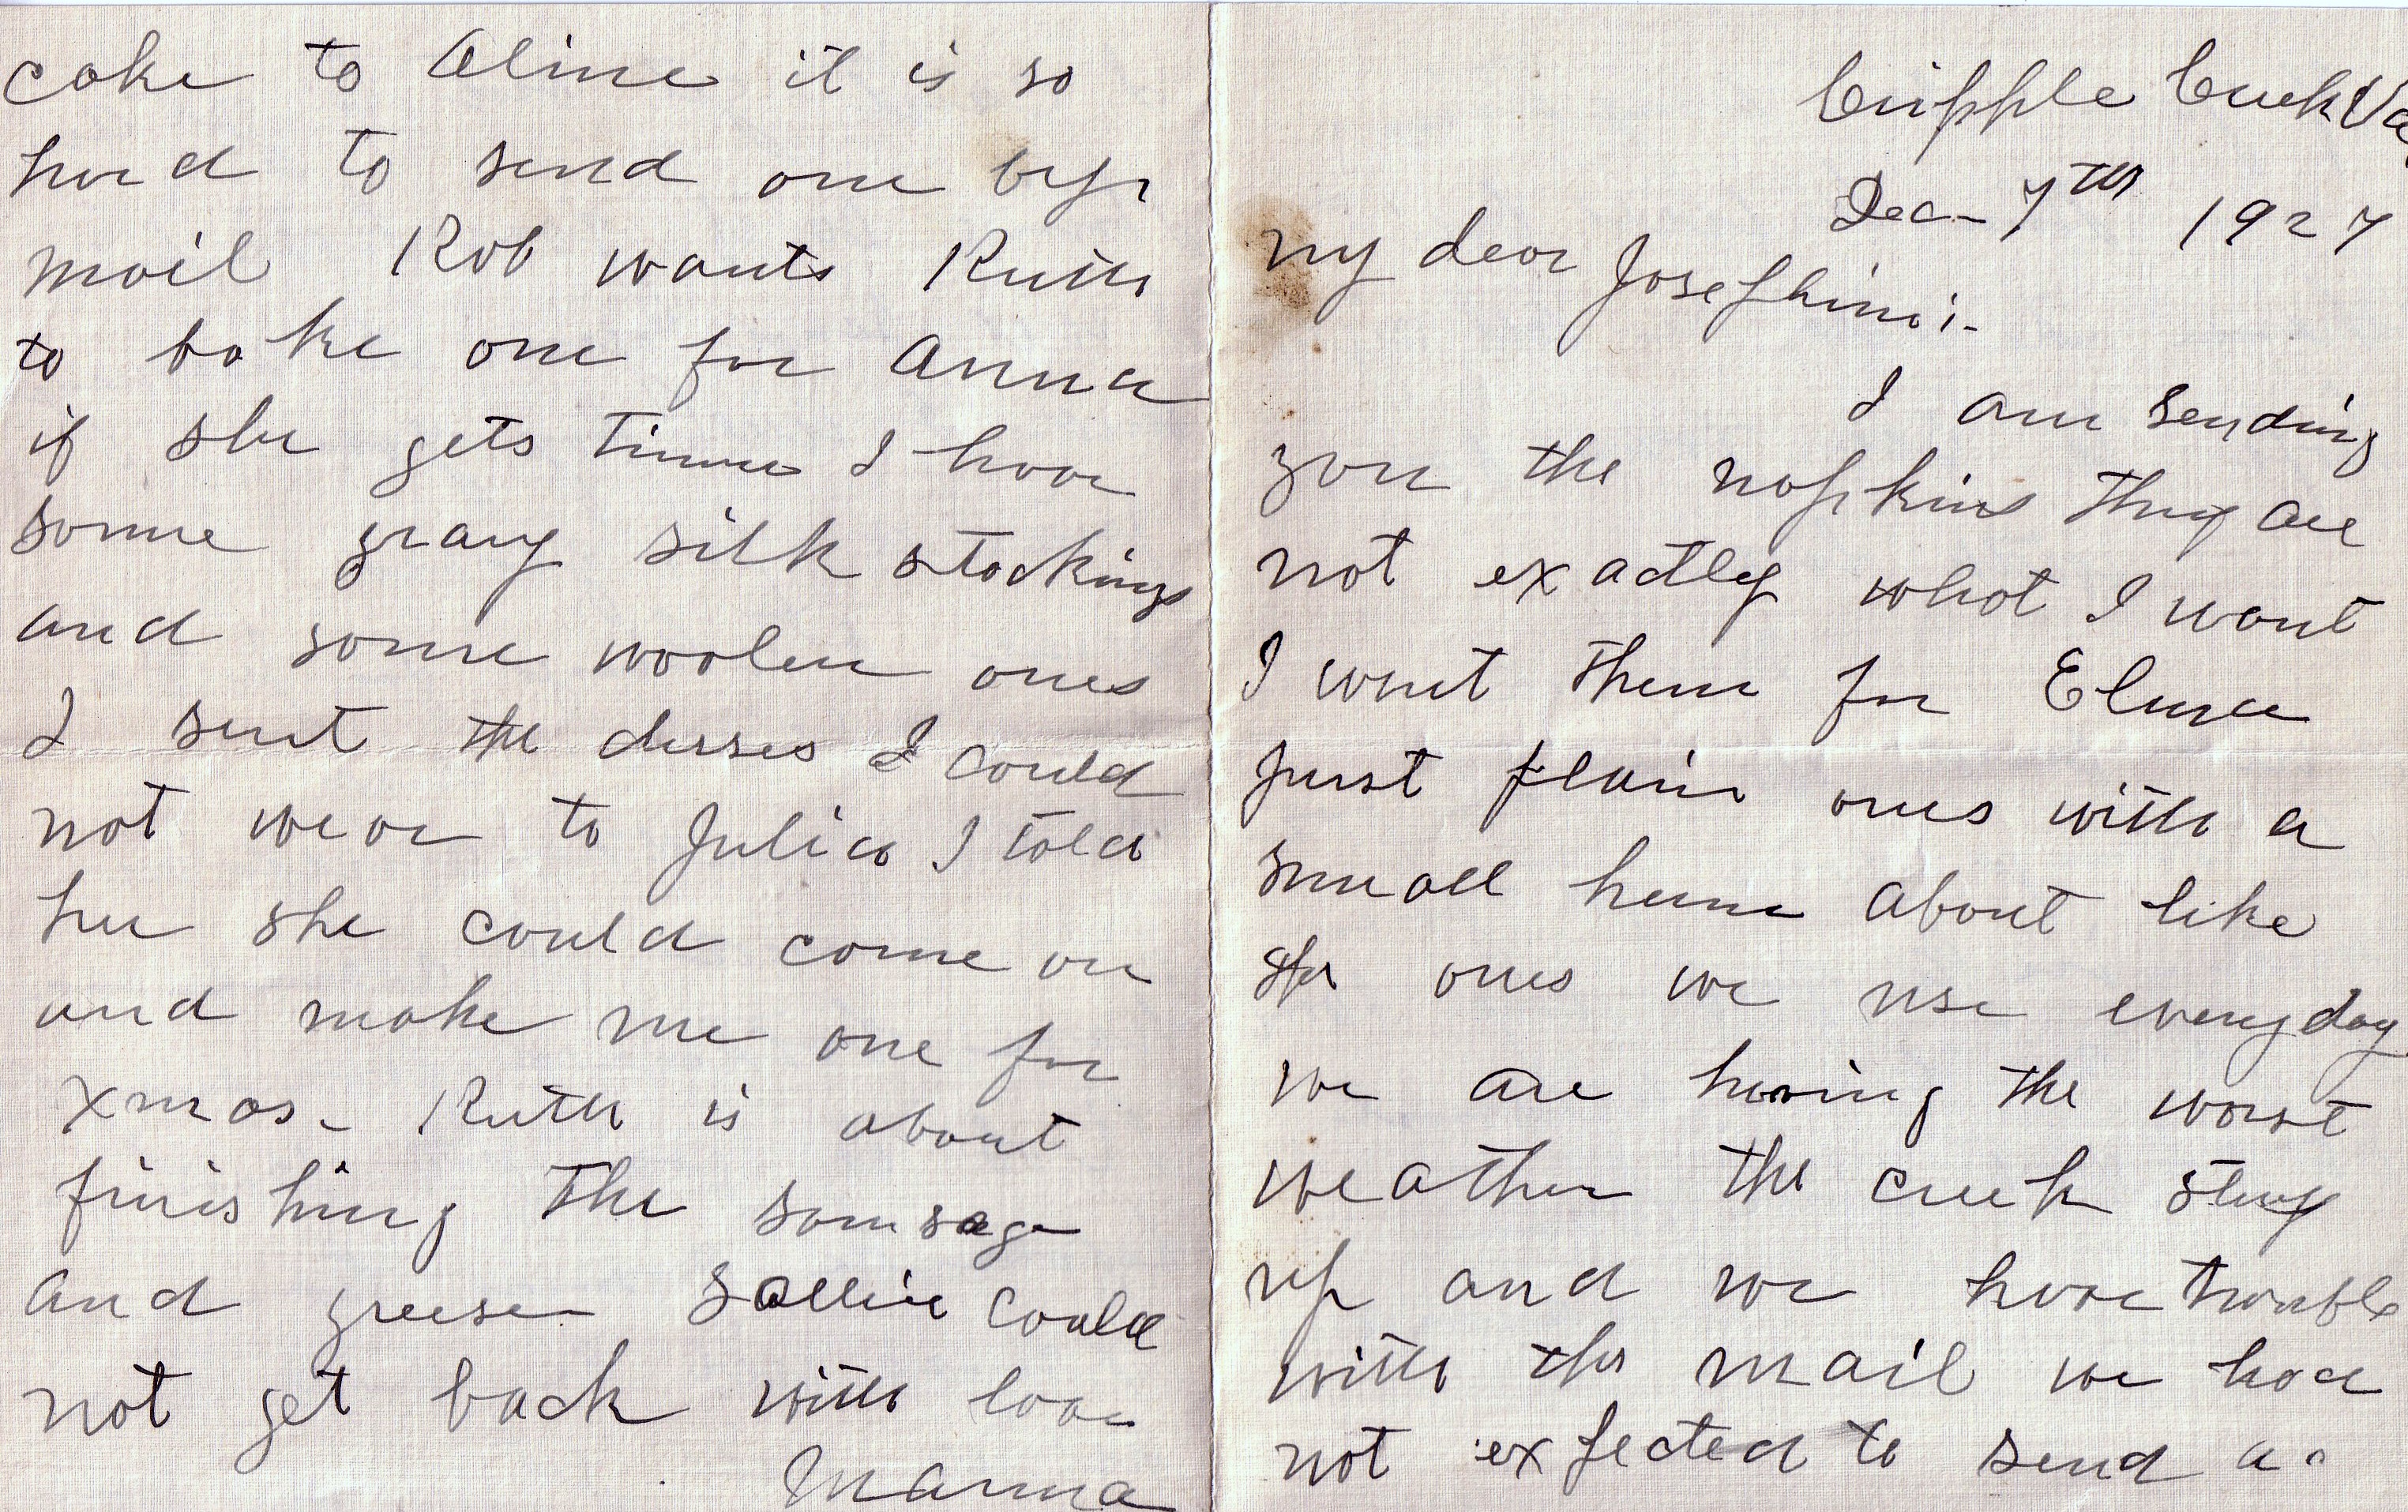 Cripple Creek Va
Dec - 7th 1927
My dear Josephine:-
I am sending
you the napkins they are
not exactly what I want
I want them for
just plain ones with a
small hem about like
the ones we use everyday
we are having the worst
weather the creek stays
up and we have trouble
with the mail we had
not expected to send a
cake to Aline it is so
hard to send one by
mail Rob wants Ruth
to bake one for Anna
if she gets time I have
some gray silk stockings
and some woolen ones
I sent the dresses I could
not wear to Julia I told
her she could come on
and make me one for
Xmas - Ruth is about
finishing the sausage
and grease Sallie could
not get back with love
Mamma